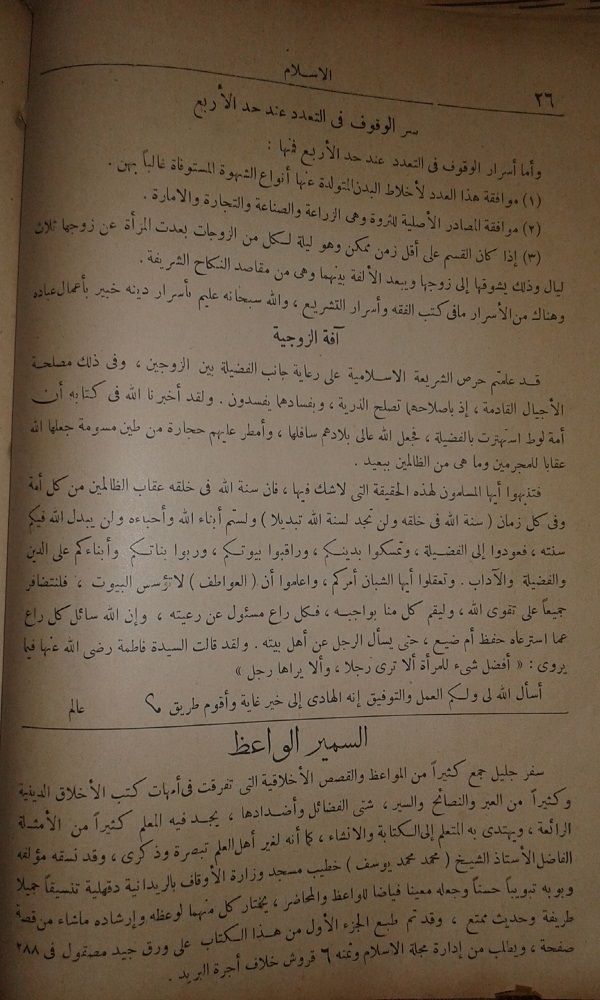 ٢٦
الاسلام
سر الوقوف فى التعدد عند حد الأربع
وأما أسرار الوقوف فى التعدد عند حد الأربع فمنها :
(١) موافقة هذا العدد لأخلاط البدن المتولدة عنها أنواع الشهوة المستوفاة غالباً بهن .
(٢) موافقة المصادر الأصلية للثروة وهى الزراعة والصناعة والتجارة والامارة .
(٣) إذا كان القسم على أقل زمن ممكن وهو ليلة لكل من الزوجات بعدت المرأة عن زوجها ثلاث
ليال وذلك يشوقها إلى زوجها ويبعد الألفة بينهما وهى من مقاصد النكاح الشريفة .
وهناك من الأسرار مافى كتب الفقه وأسرار التشريع ، والله سبحانه عليم بأسرار دينه خبير بأعمال عباده
آفة الزوجية
قد علمتم حرص الشريعة الاسلامية على رعاية جانب الفضيلة بين الزوجين ، وفى ذلك مصلحة
الأجيال القادمة ، إذ باصلاحهما تصلح الذرية ، وبفسادهما يفسدون . ولقد أخبرنا الله فى كتابه أن
أمة لوط استهترت بالفضيلة ، فجعل الله عالى بلادهم سافلها ، وأمطر عليهم حجارة من طين مسومة جعلها الله
عقابا للمجرمين وما هى من الظالمين ببعيد .
فتنبهوا أيها المسلمون لهذه الحقيقة التى لاشك فيها ، فان سنة الله فى خلقه عقاب الظالمين من كل أمة
وفى كل زمان ( سنة الله فى خلقه ولن تجد لسنة الله تبديلا ) ولستم أبناء الله وأحباءه ولن يبدل الله فيكم
سنته ، فعودوا إلى الفضيلة ، وتمسكوا بدينكم ، وراقبوا بيوتكم ، وربوا بناتكم وأبناءكم على الدين
والفضيلة والآداب . وتعقلوا أيها الشبان أمركم ، واعلموا أن ( العواطف ) لا تؤسس البيوت ، فلنتضافر
جميعاً على تقوى الله ، وليقم كل منا بواجبه ، فكل راع مسئول عن رعيته ، وإن الله سائل كل راع
عما استرعاه حفظ أم ضيع ، حتى يسأل الرجل عن أهل بيته . ولقد قالت السيدة فاطمة رضى الله عنها فيما
يروى : « أفضل شىء للمرأة ألا ترى رجلا ، وألا يراها رجل »
أسأل الله لى ولكم العمل والتوفيق إنه الهادى إلى خير غاية وأقوم طريق عالم
السمير الواعظ
سفر جليل جمع كثيراً من المواعظ والقصص الأخلاقية التى تفرقت فى أمهات كتب الأخلاق الدينية
وكثيراً من العبر والنصائح والسير ، شتى الفضائل وأضدادها ، يجد فيه المعلم كثيراً من الأمثلة
الرائعة ، ويهتدى به المتعلم إلى الكتابة والانشاء ، كما أنه لغير أهل العلم تبصرة وذكرى ، وقد نسقه مؤلفه
الفاضل الأستاذ الشيخ ( محمد محمد يوسف ) خطيب مسجد وزارة الأوقاف بالريدانية دقهلية تنسيقاً جميلا
وبوبه تبويباً حسناً وجعله معينا فياضا للواعظ والمحاضر ، يختار كل منهما لوعظه وإرشاده ماشاء من قصة
طريفة وحديث ممتع ، وقد تم طبع الجزء الأول من هذا الكتاب على ورق جيد مصقول فى ٢٨٨
صفحة ، ويطلب من إدارة مجلة الاسلام وثمنه ٦ قروش خلاف أجرة البريد .